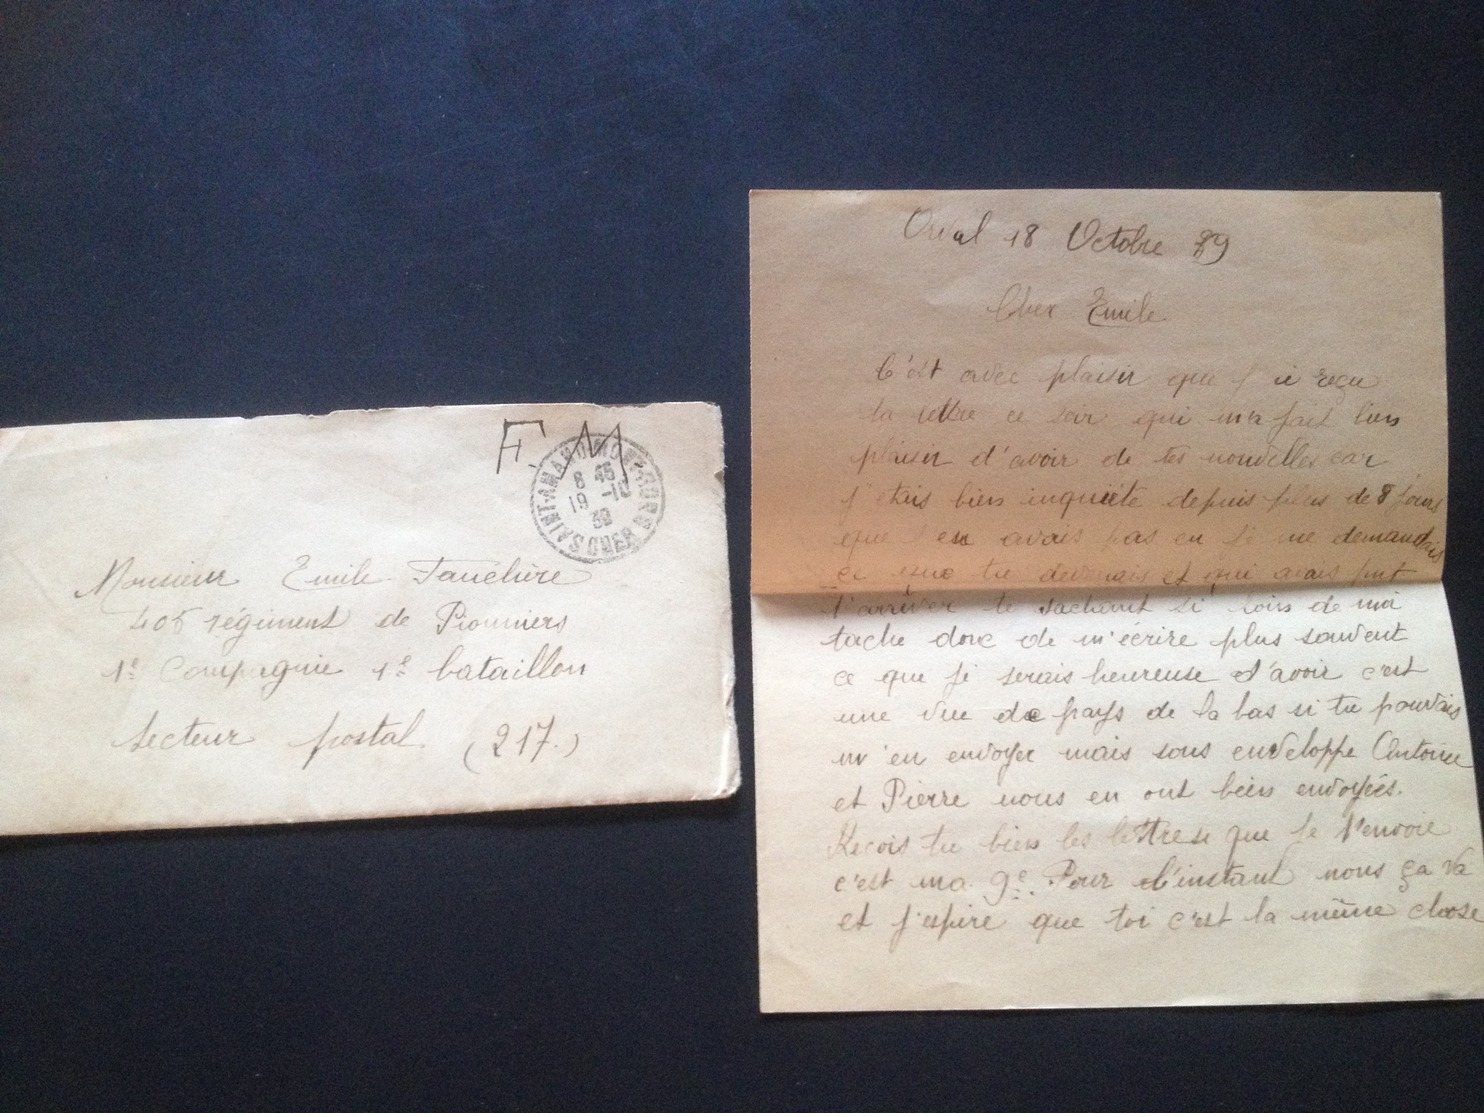 F M
SAINT-AMAND-MONT-ROND
8 45
19 -10
39
CHER
Monsieur Emile Fauchère
405 régiment de Pionniers
1e Compagnie 1e bataillon
Secteur postal (217.)
Orval 18 Octobre 39
Cher Emile
C'est avec plaisir que j'ai reçu
ta lettre ce soir qui m'a fait bien
plaisir d'avoir de tes nouvelles car
j'étais bien inquiète depuis plus de 8 jours
que j'en avais pas eu je me demandais
ce que tu devenais et qui avais put
t'arriver te sachant si loin de moi
tache donc de m'écrire plus souvent
ce que je serais heureuse d'avoir c'est
une vue de pays de la bas si tu pouvais
m'en envoyer mais sous enveloppe Antoine
et Pierre nous en ont bien envoyés.
Recois tu bien les lettres que je t'envoie
c'est ma 9e. Pour l'instant nous ça va
et j'espire que toi c'est la même chose